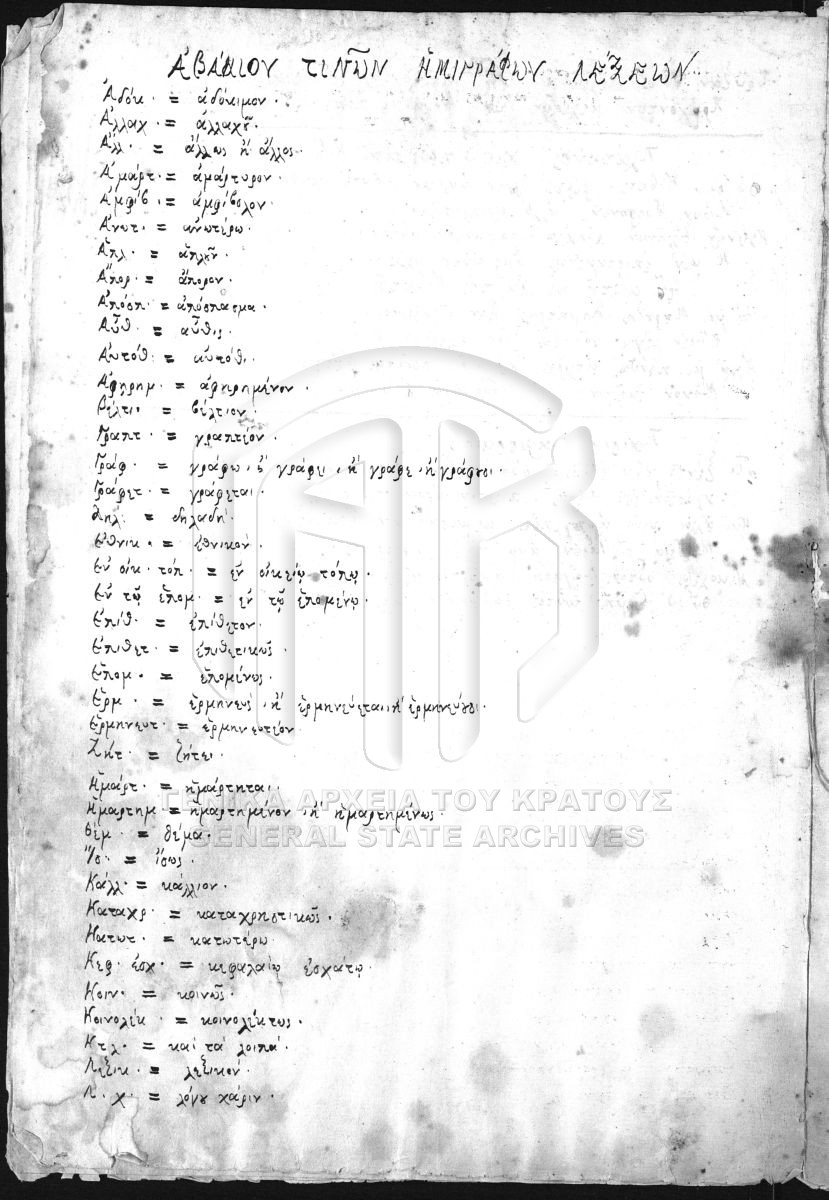 ἈΒΆΚΙΟΝ ΤΙΝῶΝ ἩΜΙΓΡΆΦΩΝ ΛΈΞΕΩΝ
Ἀδόκ· = ἀδόκιμον·
Ἀλλαχ· = ἀλλαχοῦ·
Ἀλλ· = ἄλλως ἢ ἄλλος·
Ἀμάρτ· = ἀμάρτυρον·
Ἀμφίβ· = ἀμφίβολον·
Ἀνωτ· = ἀνωτέρω·
Ἁπλ· = ἁπλοῦν·
Ἄπορ· = ἄπορον·
Ἀπόσπ· = ἀπόσπασμα·
Αὖθ· = αὖθις·
Αὐτόθ· = αὐτόθι·
Ἀφῃρημ· = ἀφῃρημένον·
Βέλτι· = βέλτιον·
Γραπτ· = γραπτέον·
Γράφ· = γράφω, ἢ γράφει, ἢ γράφε, ἢ γράφουσι·
Γράφετ· = γράφεται·
Δηλ· = δηλαδή·
Ἐθνικ· = ἐθνικόν·
Ἐν οἰκ· τόπ· = ἐν οἰκείῳ τόπῳ·
Ἐν τῷ ἑπομ· = ἐν τῷ ἑπομένῳ·
Ἐπίθ· = ἐπίθετον·
Ἐπιθετ· = ἐπιθετικῶς·
Ἑπομ· = ἑπομένως·
Ἑρμ· = ἑρμηνεύς, ἢ ἑρμηνεύεται, ἢ ἑρμηνεύουσι·
Ἑρμηνευτ· = ἑρμηνευτέον
Ζήτ· = ζήτει·
Ἡμάρτ· = ἡμάρτηται·
Ἡμαρτημ· = ἡμαρτημένον, ἢ ἡμαρτημένως·
Θέμ· = θέμα·
Ἴσ· = ἴσως·
Κάλλ· = κάλλιον·
Καταχρ· = καταχρηστικῶς·
Κατωτ· = κατωτέρω
Κεφ· ἐσχ· = κεφαλαίῳ ἐσχάτῳ·
Κοιν· = κοινῶς·
Κοινολέκ· = κοινολέκτως·
Κτλ· = καὶ τὰ λοιπά·
Λεξικ· = λεξικόν·
Λ· χ· = λόγου χάριν·
ΓΕΝΙΚΑ ΑΡΧΕΙΑ ΤΟΥ ΚΡΑΤΟΥΣ
GENERAL STATE ARCHIVES